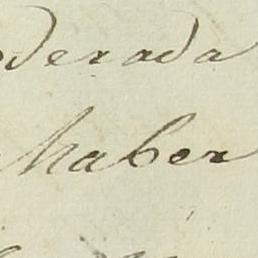 oderada
haber